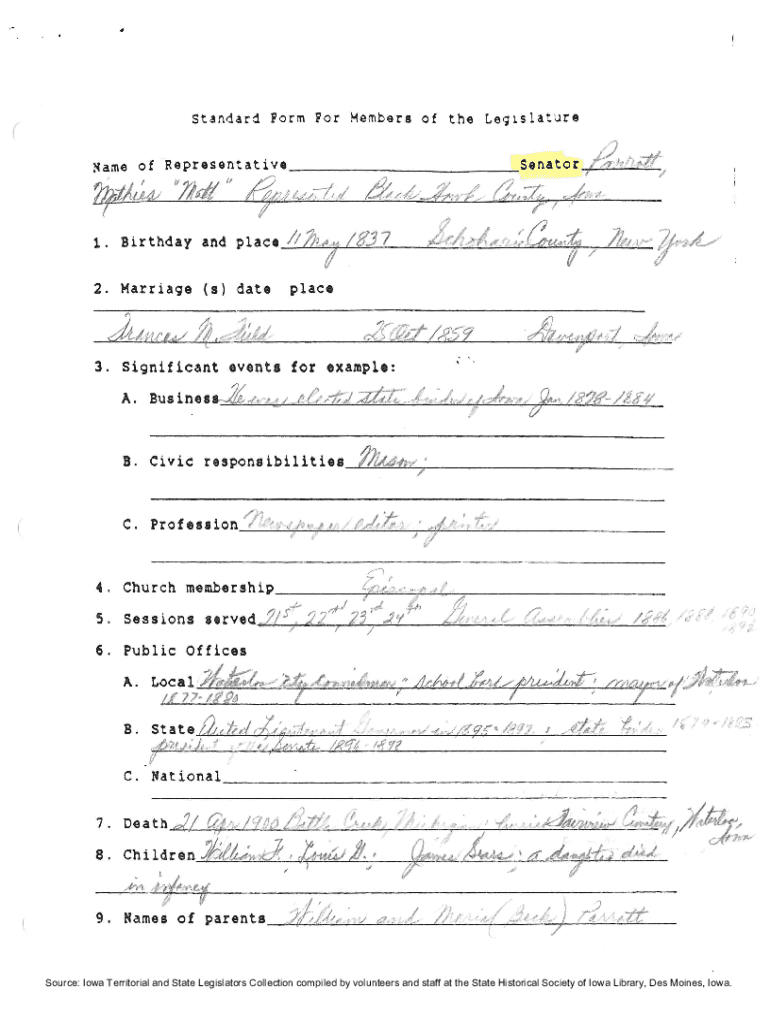 Standard Form For Members of the Legislature
Name of Representative Senator Parrott,
Mathias "Matt" Represented Black Hawk County, Iowa
1. Birthday and place 11 May 1837 Schoharie County, New York
2. Marriage (s) date place
Frances M. Field 25 Oct 1859 Davenport, Iowa
3. Significant events for example:
A. Business He was elected state binder of Iowa Jan 1878-1884
B. Civic responsibilities Mason;
C. Profession Newspaper editor; printer
4. Church membership Episcopal
5. Sessions served 21st, 22nd, 23rd, 24th General Assemblies 1886, 1888, 1890
1892
6. Public Offices
A. Local Waterloo City Councilman; School board president; mayor of Waterloo
1877-1880
B. State Lieutenant Governor in 1895-1897; state binder 1879-1885
president of the Senate 1896-1898
C. National
7. Death 21 Apr 1900 Battle Creek, Michigan; buried Fairview Cemetery, Waterloo,
Iowa
8. Children William F.; Louis G.; James Sears; a daughter died
in infancy
9. Names of parents William and Maria (Beck) Parrott
Source: Iowa Territorial and State Legislators Collection compiled by volunteers and staff at the State Historical Society of Iowa Library, Des Moines, Iowa.